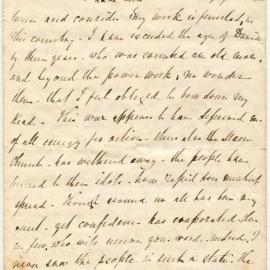 town and consider. My work is finished, in
this country. I have exceeded the age of David
by three years. who was counted an old man.
and beyond the power work; no wonder
then. that I feel obliged to bow down my
head. This war appears to have deprived me
of all energy for action. then also the
Church. has withered away. the people have
joined to their idols. how rapid does
spread. around us all has been my
. yet confidence has evaporated. there
is few, who will receive your word. indeed I
never saw the people in such a state. the